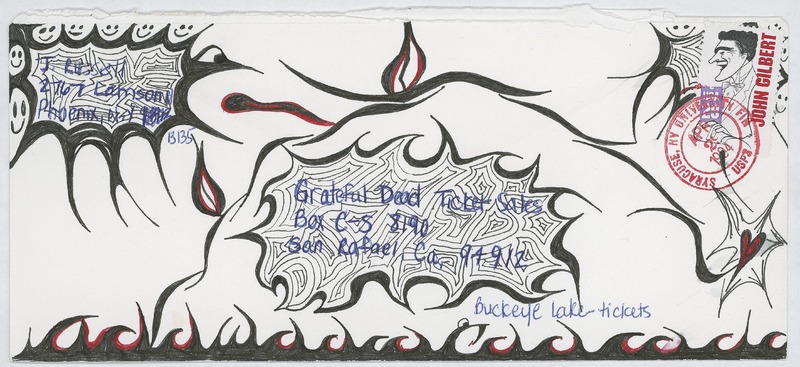 J. Russell
Phoenix, N.Y.
B135
Grateful Dead Ticket Sales
Box C-S 8190
San Rafael, Ca, 94912
Buckeye Lake-tickets
JOHN GILBERT
SYRACUSE, NY UNIVERSITY
APR
1994
USPS